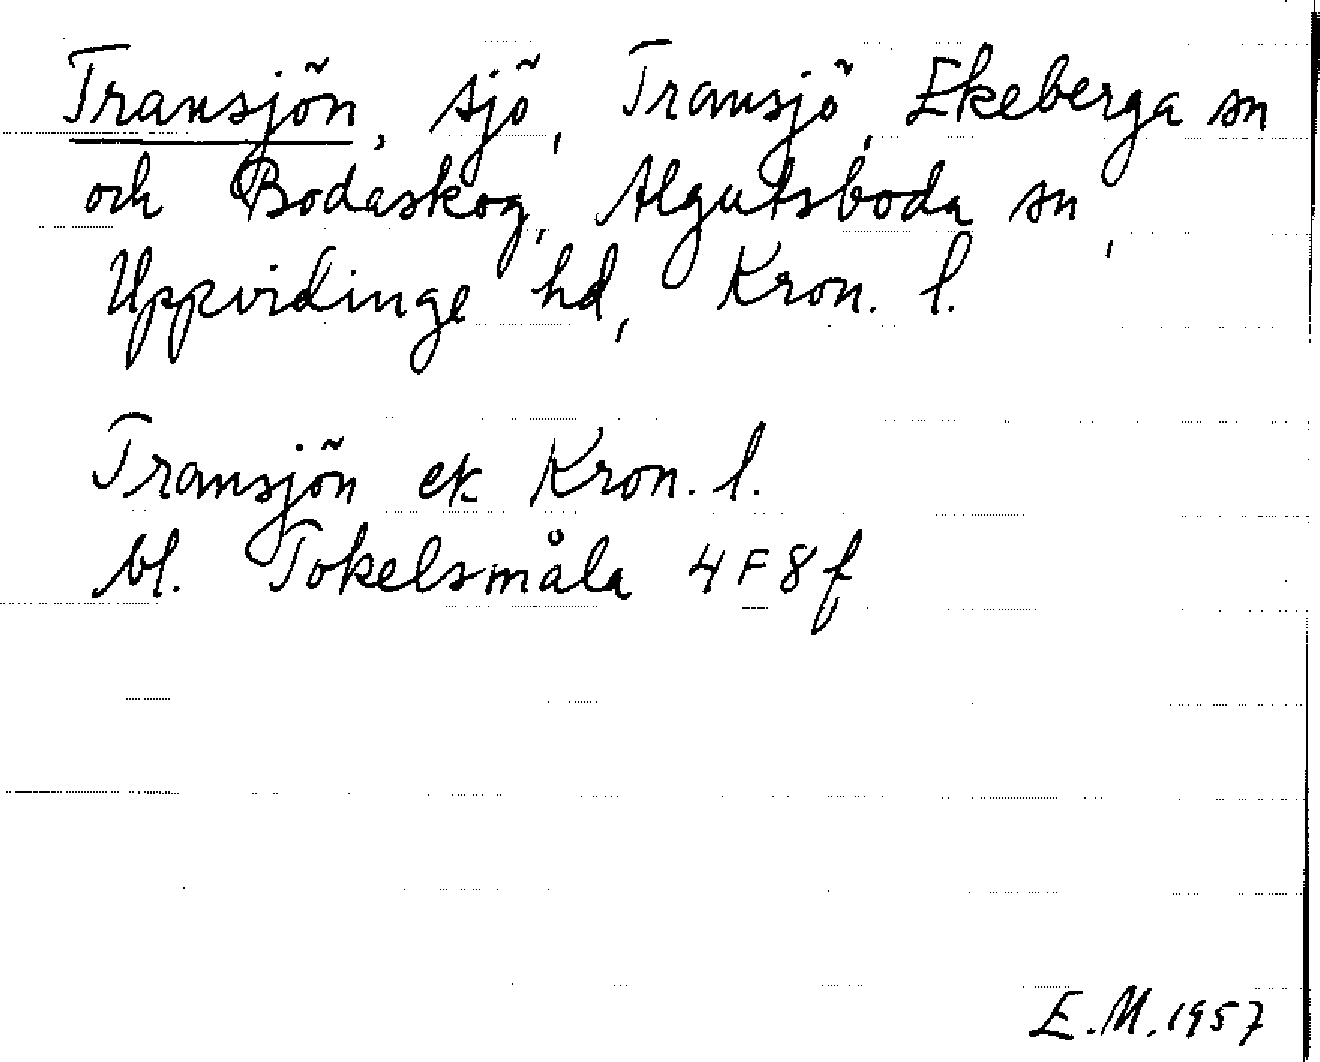 Transjön, sjö, Transjö, Ekeberga sn
och Bodaskog, Algutsboda sn,
Uppvidinge hd, Kron. l.
Transjön ek Kron. l.
bl. Tokelsmåla 4F8f
E.M. 1957